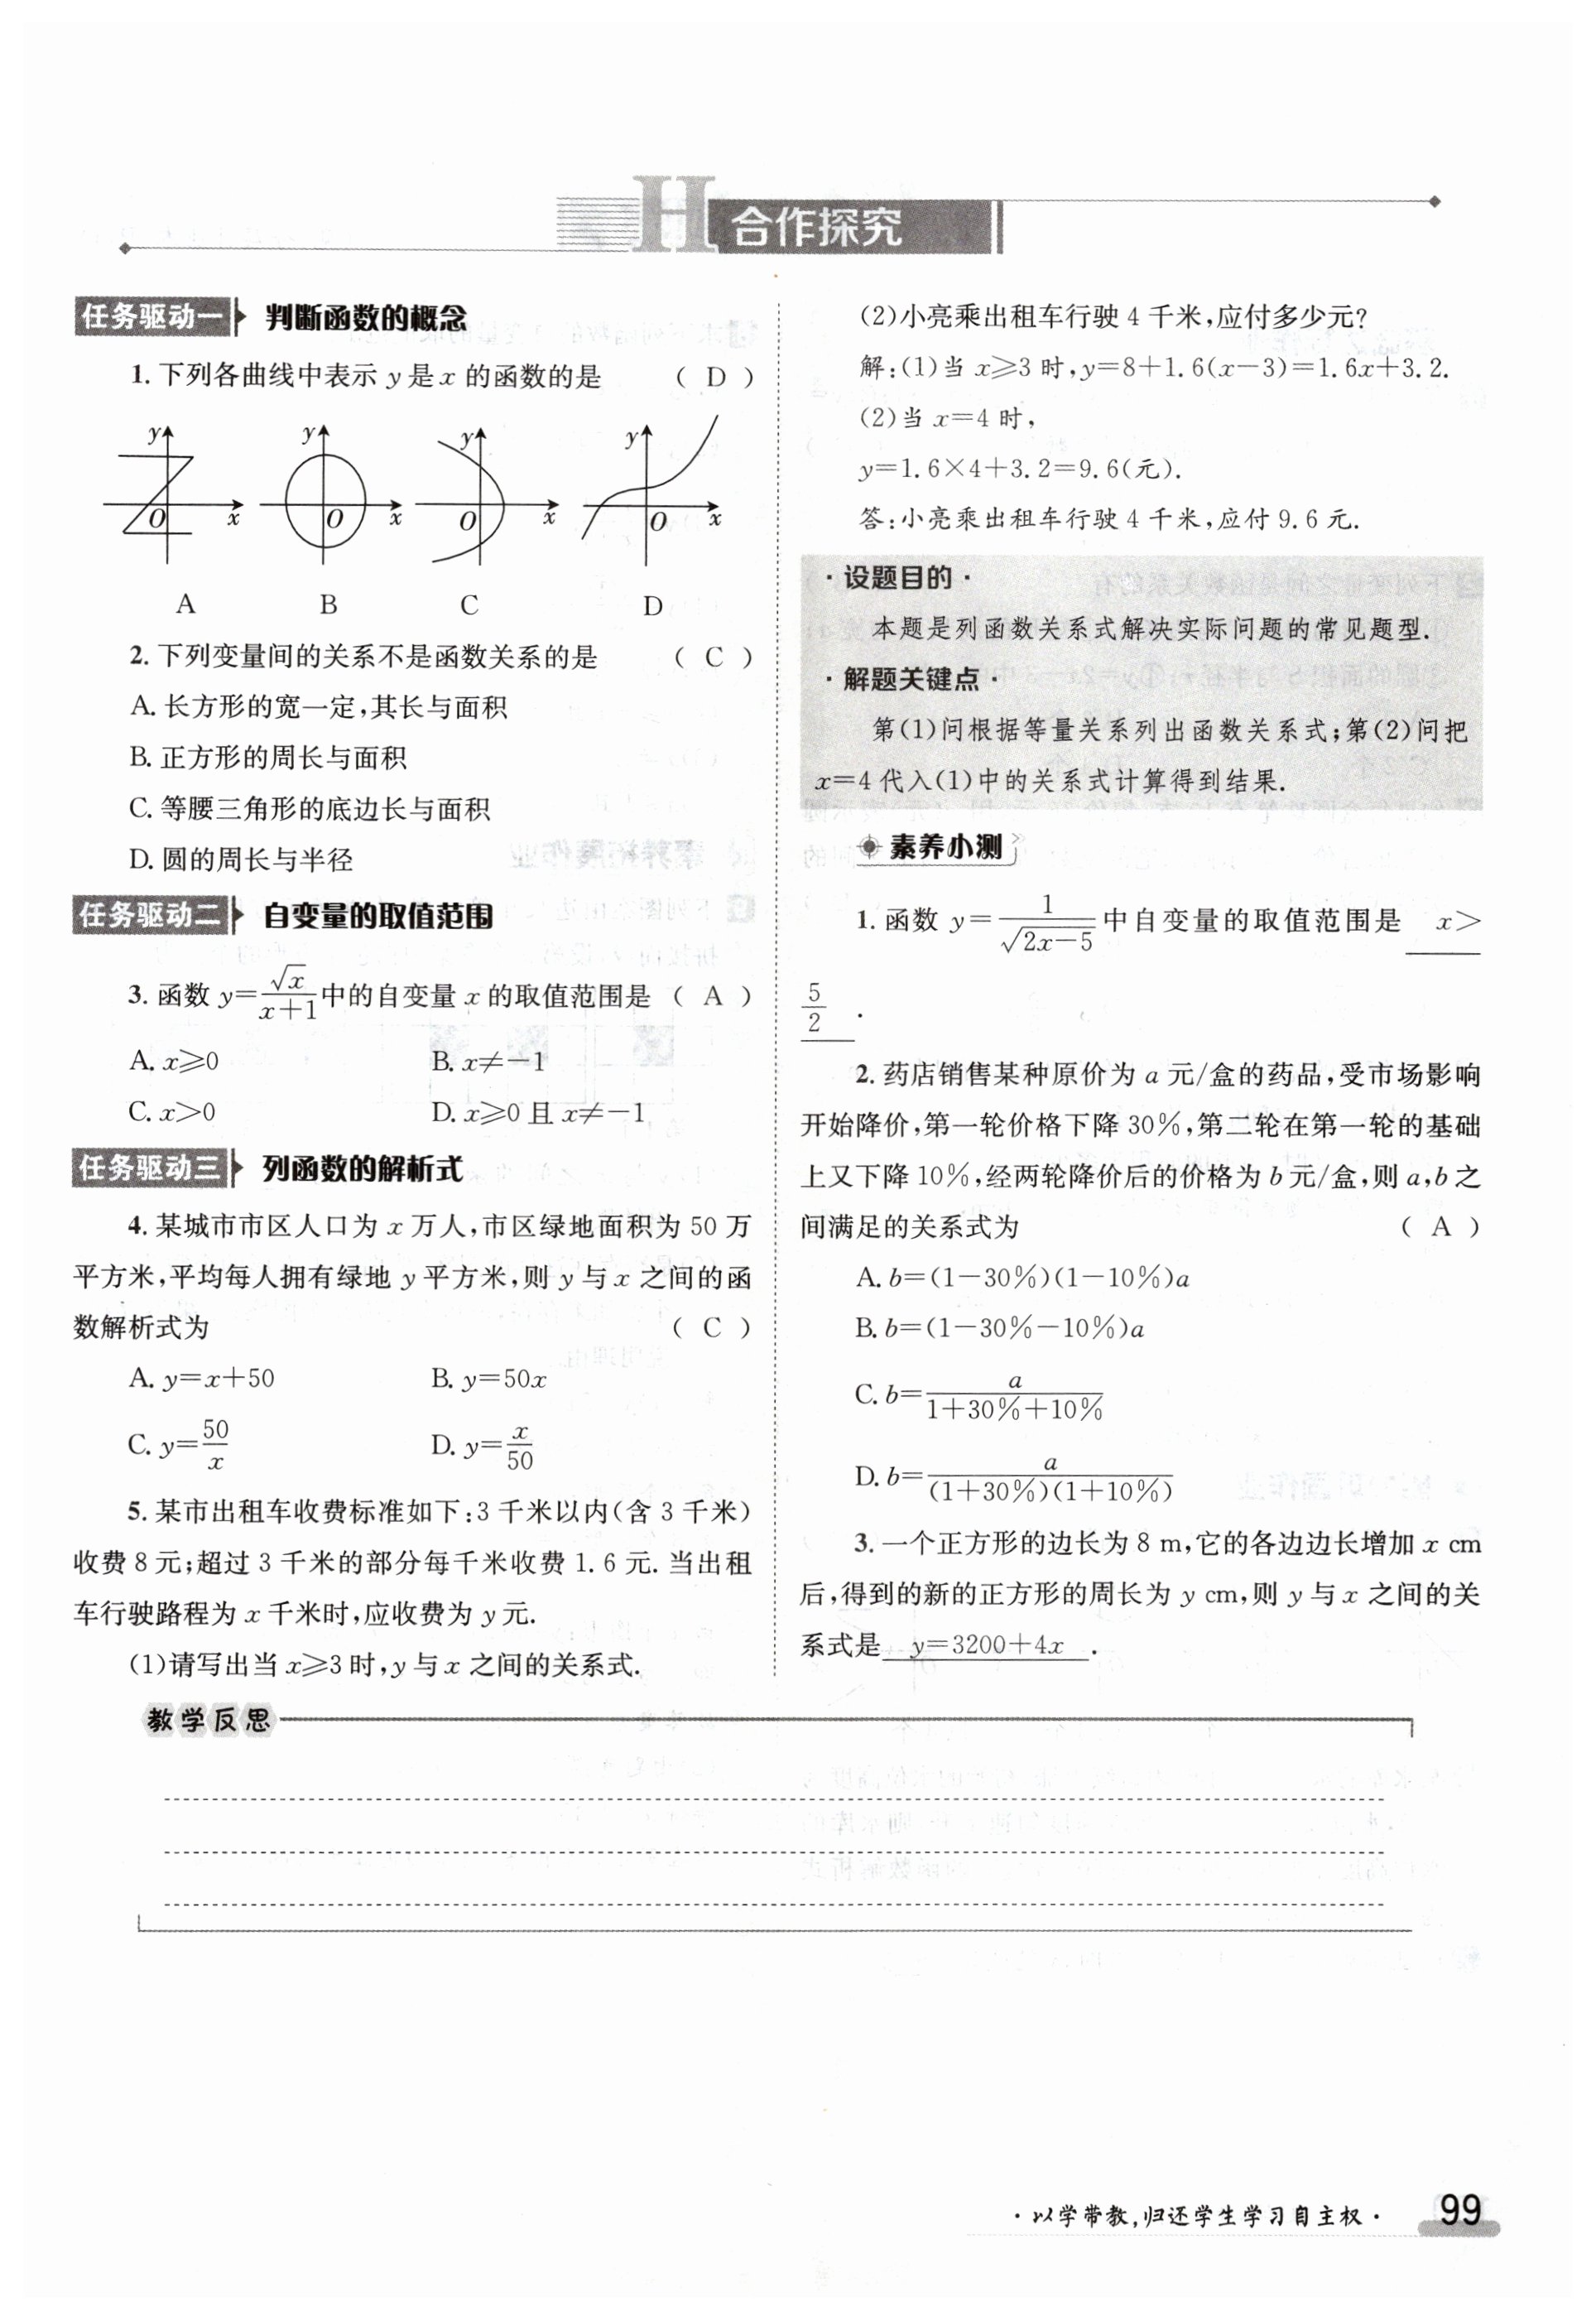 H 合作探究
任务驱动一 判断函数的概念
1. 下列各曲线中表示 y 是 x 的函数的是 ( D )
y y y y
O x O x O x O x
A B C D
2. 下列变量间的关系不是函数关系的是 ( C )
A. 长方形的宽一定,其长与面积
B. 正方形的周长与面积
C. 等腰三角形的底边长与面积
D. 圆的周长与半径
任务驱动二 自变量的取值范围
3. 函数 y=√x/(x+1) 中的自变量 x 的取值范围是 ( A )
A. x≥0 B. x≠−1
C. x>0 D. x≥0 且 x≠−1
任务驱动三 列函数的解析式
4. 某城市市区人口为 x 万人,市区绿地面积为 50 万
平方米,平均每人拥有绿地 y 平方米,则 y 与 x 之间的函
数解析式为 ( C )
A. y=x+50 B. y=50x
C. y=50/x D. y=x/50
5. 某市出租车收费标准如下:3 千米以内(含 3 千米)
收费 8 元;超过 3 千米的部分每千米收费 1.6 元. 当出租
车行驶路程为 x 千米时,应收费为 y 元.
(1)请写出当 x≥3 时,y 与 x 之间的关系式.
(2)小亮乘出租车行驶 4 千米,应付多少元?
解:(1)当 x≥3 时,y=8+1.6(x−3)=1.6x+3.2.
(2)当 x=4 时,
y=1.6×4+3.2=9.6(元).
答:小亮乘出租车行驶 4 千米,应付 9.6 元.
·设题目的·
本题是列函数关系式解决实际问题的常见题型.
·解题关键点·
第(1)问根据等量关系列出函数关系式;第(2)问把
x=4 代入(1)中的关系式计算得到结果.
素养小测
1. 函数 y=1/√(2x−5) 中自变量的取值范围是 x>
5/2 .
2. 药店销售某种原价为 a 元/盒的药品,受市场影响
开始降价,第一轮价格下降 30%,第二轮在第一轮的基础
上又下降 10%,经两轮降价后的价格为 b 元/盒,则 a,b 之
间满足的关系式为 ( A )
A. b=(1−30%)(1−10%)a
B. b=(1−30%−10%)a
C. b=a/(1+30%+10%)
D. b=a/((1+30%)(1+10%))
3. 一个正方形的边长为 8 m,它的各边边长增加 x cm
后,得到的新的正方形的周长为 y cm,则 y 与 x 之间的关
系式是 y=3200+4x .
教学反思
·以学带教,归还学生学习自主权· 99